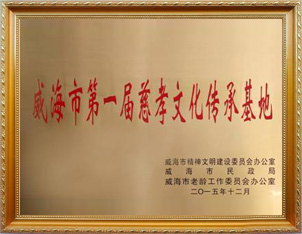 威海市第一届慈孝文化传承基地
威海市精神文明建设委员会办公室
威海市民政局
威海市老龄工作委员会办公室
二〇一五年十二月